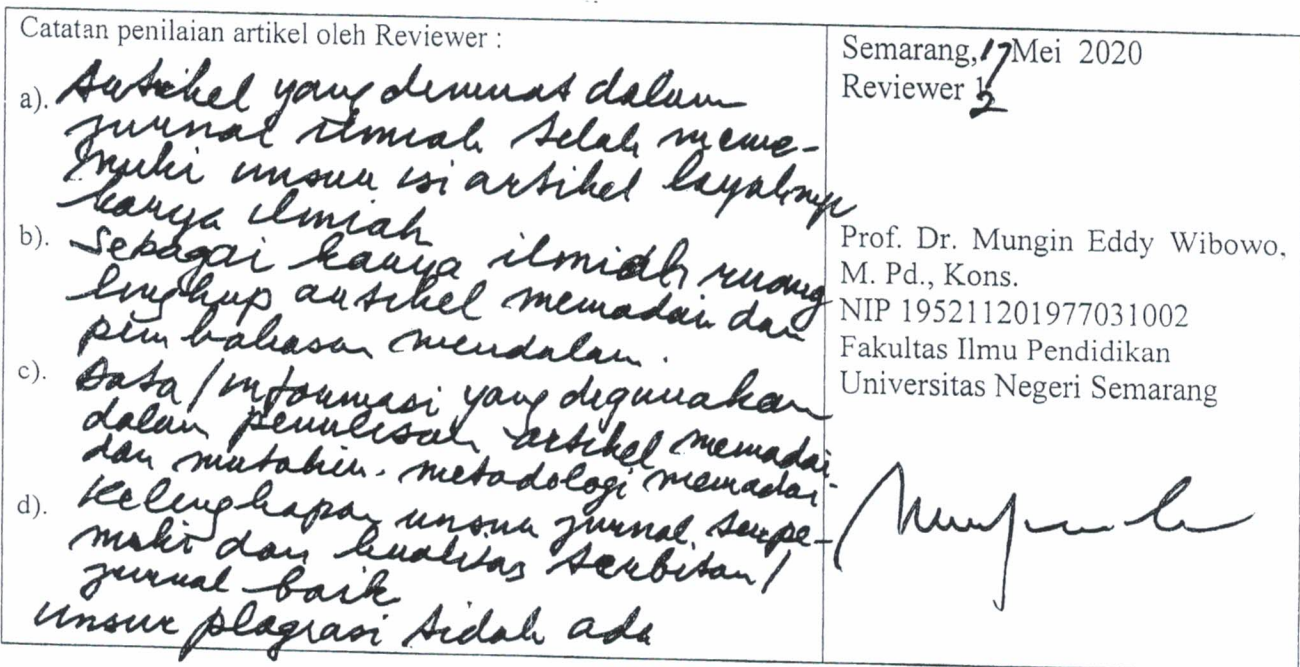 Catatan penilaian artikel oleh Reviewer :
a). Artikel yang dimuat dalam
jurnal ilmiah telah meme-
nuhi unsur isi artikel layaknya
karya ilmiah
b). Sebagai karya ilmiah ruang
lingkup artikel memadai dan
pembahasan mendalam.
c). Data/informasi yang digunakan
dalam penulisan artikel memadai
dan mutahir. metodologi memadai
d). Kelengkapan unsur jurnal terpe-
nuhi dan kualitas terbitan/
jurnal baik
unsur plagrasi tidak ada
Semarang, 17 Mei 2020
Reviewer 1/2
Prof. Dr. Mungin Eddy Wibowo,
M. Pd., Kons.
NIP 195211201977031002
Fakultas Ilmu Pendidikan
Universitas Negeri Semarang